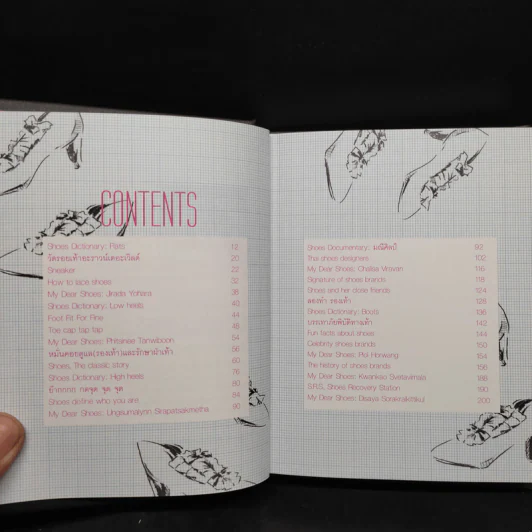 CONTENTS
Shoes Dictionary: Flats 12
วัดรอยเท้าอะราวน์เดอะเวิลด์ 20
Sneaker 22
How to lace shoes 32
My Dear Shoes: Jirada Yohara 36
Shoes Dictionary: Low heels 40
Foot Fit For Fine 44
Toe cap tap tap 48
My Dear Shoes: Phitsinee Tanwiboon 54
หมั่นคอยดูแล(รองเท้า)และรักษาฝ่าเท้า 56
Shoes, The classic story 60
Shoes Dictionary: High heels 76
กดจุด จุด จุด 80
Shoes define who you are 84
My Dear Shoes: Ungsumalynn Sirapatsakmetha 90
Shoes Documentary: มณีศิลป์ 92
Thai shoes designers 102
My Dear Shoes: Chalisa Viravan 116
Signature of shoes brands 118
Shoes and her close friends 124
ลองเท้า รองเท้า 128
Shoes Dictionary: Boots 136
บรรเทาภัยพิบัติทางเท้า 142
Fun facts about shoes 144
Celebrity shoes brands 150
My Dear Shoes: Ploi Horwang 154
The history of shoes brands 156
My Dear Shoes: Kwankao Svetavimala 188
S.R.S. Shoes Recovery Station 190
My Dear Shoes: Disaya Sorakraikitikul 200